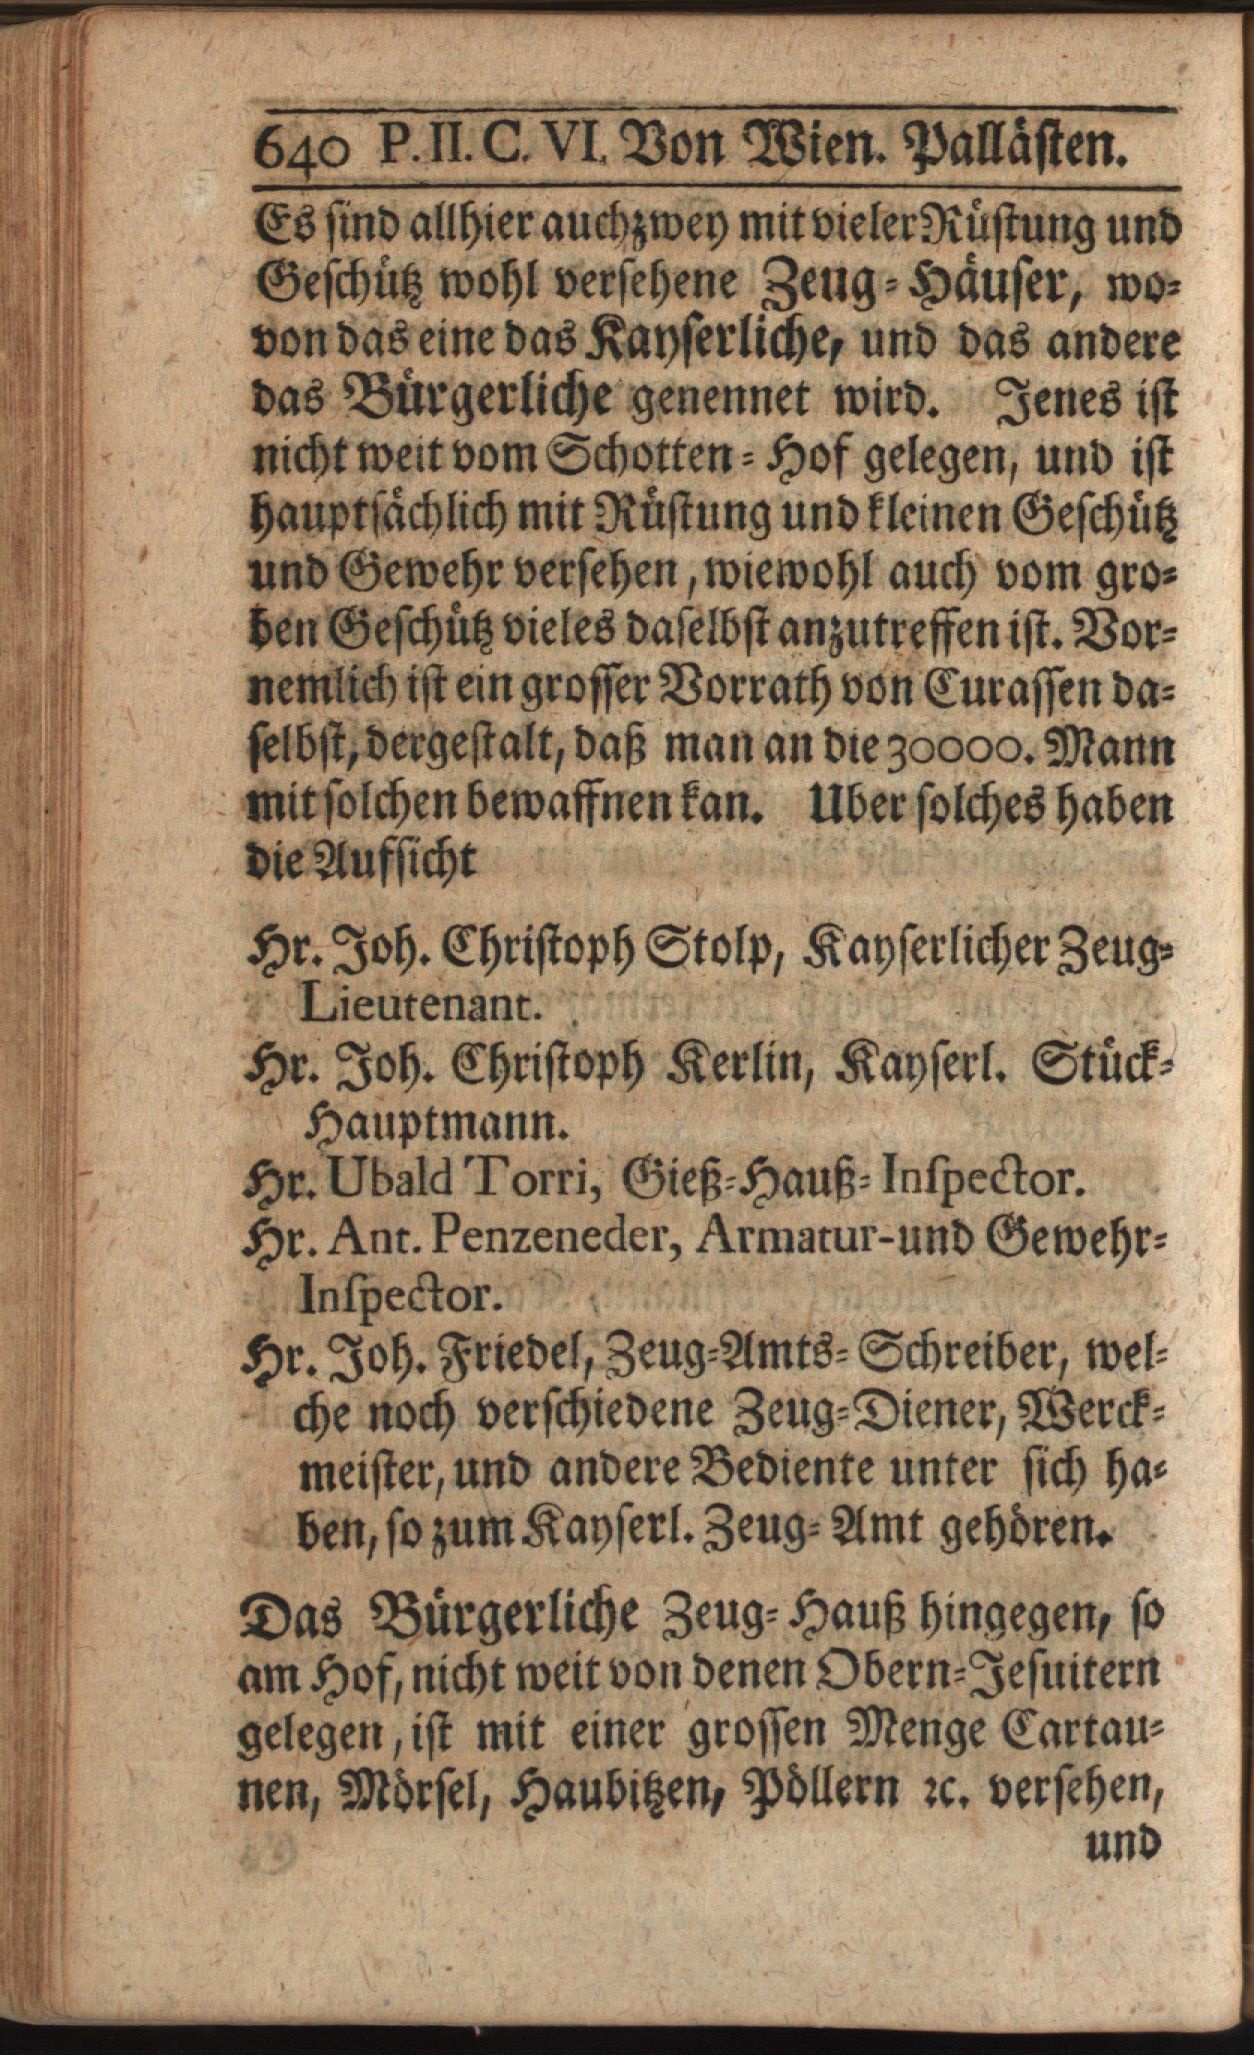 640 P. II. C. VI. Von Wien. Pallästen.
Es sind allhier auch zwey mit vieler Rüstung und
Geschütz wohl versehene Zeug-Häuser, wo-
von das eine das Kayserliche, und das andere
das Bürgerliche genennet wird. Jenes ist
nicht weit vom Schotten-Hof gelegen, und ist
hauptsächlich mit Rüstung und kleinen Geschütz
und Gewehr versehen, wiewohl auch vom gro-
ben Geschütz vieles daselbst anzutreffen ist. Vor-
nemlich ist ein grosser Vorrath von Curassen da-
selbst, dergestalt, daß man an die 30000. Mann
mit solchen bewaffnen kan. Uber solches haben
die Aufsicht
Hr. Joh. Christoph Stolp, Kayserlicher Zeug-
Lieutenant.
Hr. Joh. Christoph Kerlin, Kayserl. Stück-
Hauptmann.
Hr. Ubald Torri, Gieß-Hauß-Inspector.
Hr. Ant. Penzeneder, Armatur-und Gewehr-
Inspector.
Hr. Joh. Friedel, Zeug-Amts-Schreiber, wel-
che noch verschiedene Zeug-Diener, Werck-
meister, und andere Bediente unter sich ha-
ben, so zum Kayserl. Zeug-Amt gehören.
Das Bürgerliche Zeug-Hauß hingegen, so
am Hof, nicht weit von denen Obern-Jesuitern
gelegen, ist mit einer grossen Menge Cartau-
nen, Mörsel, Haubitzen, Pöllern ꝛc. versehen,
und